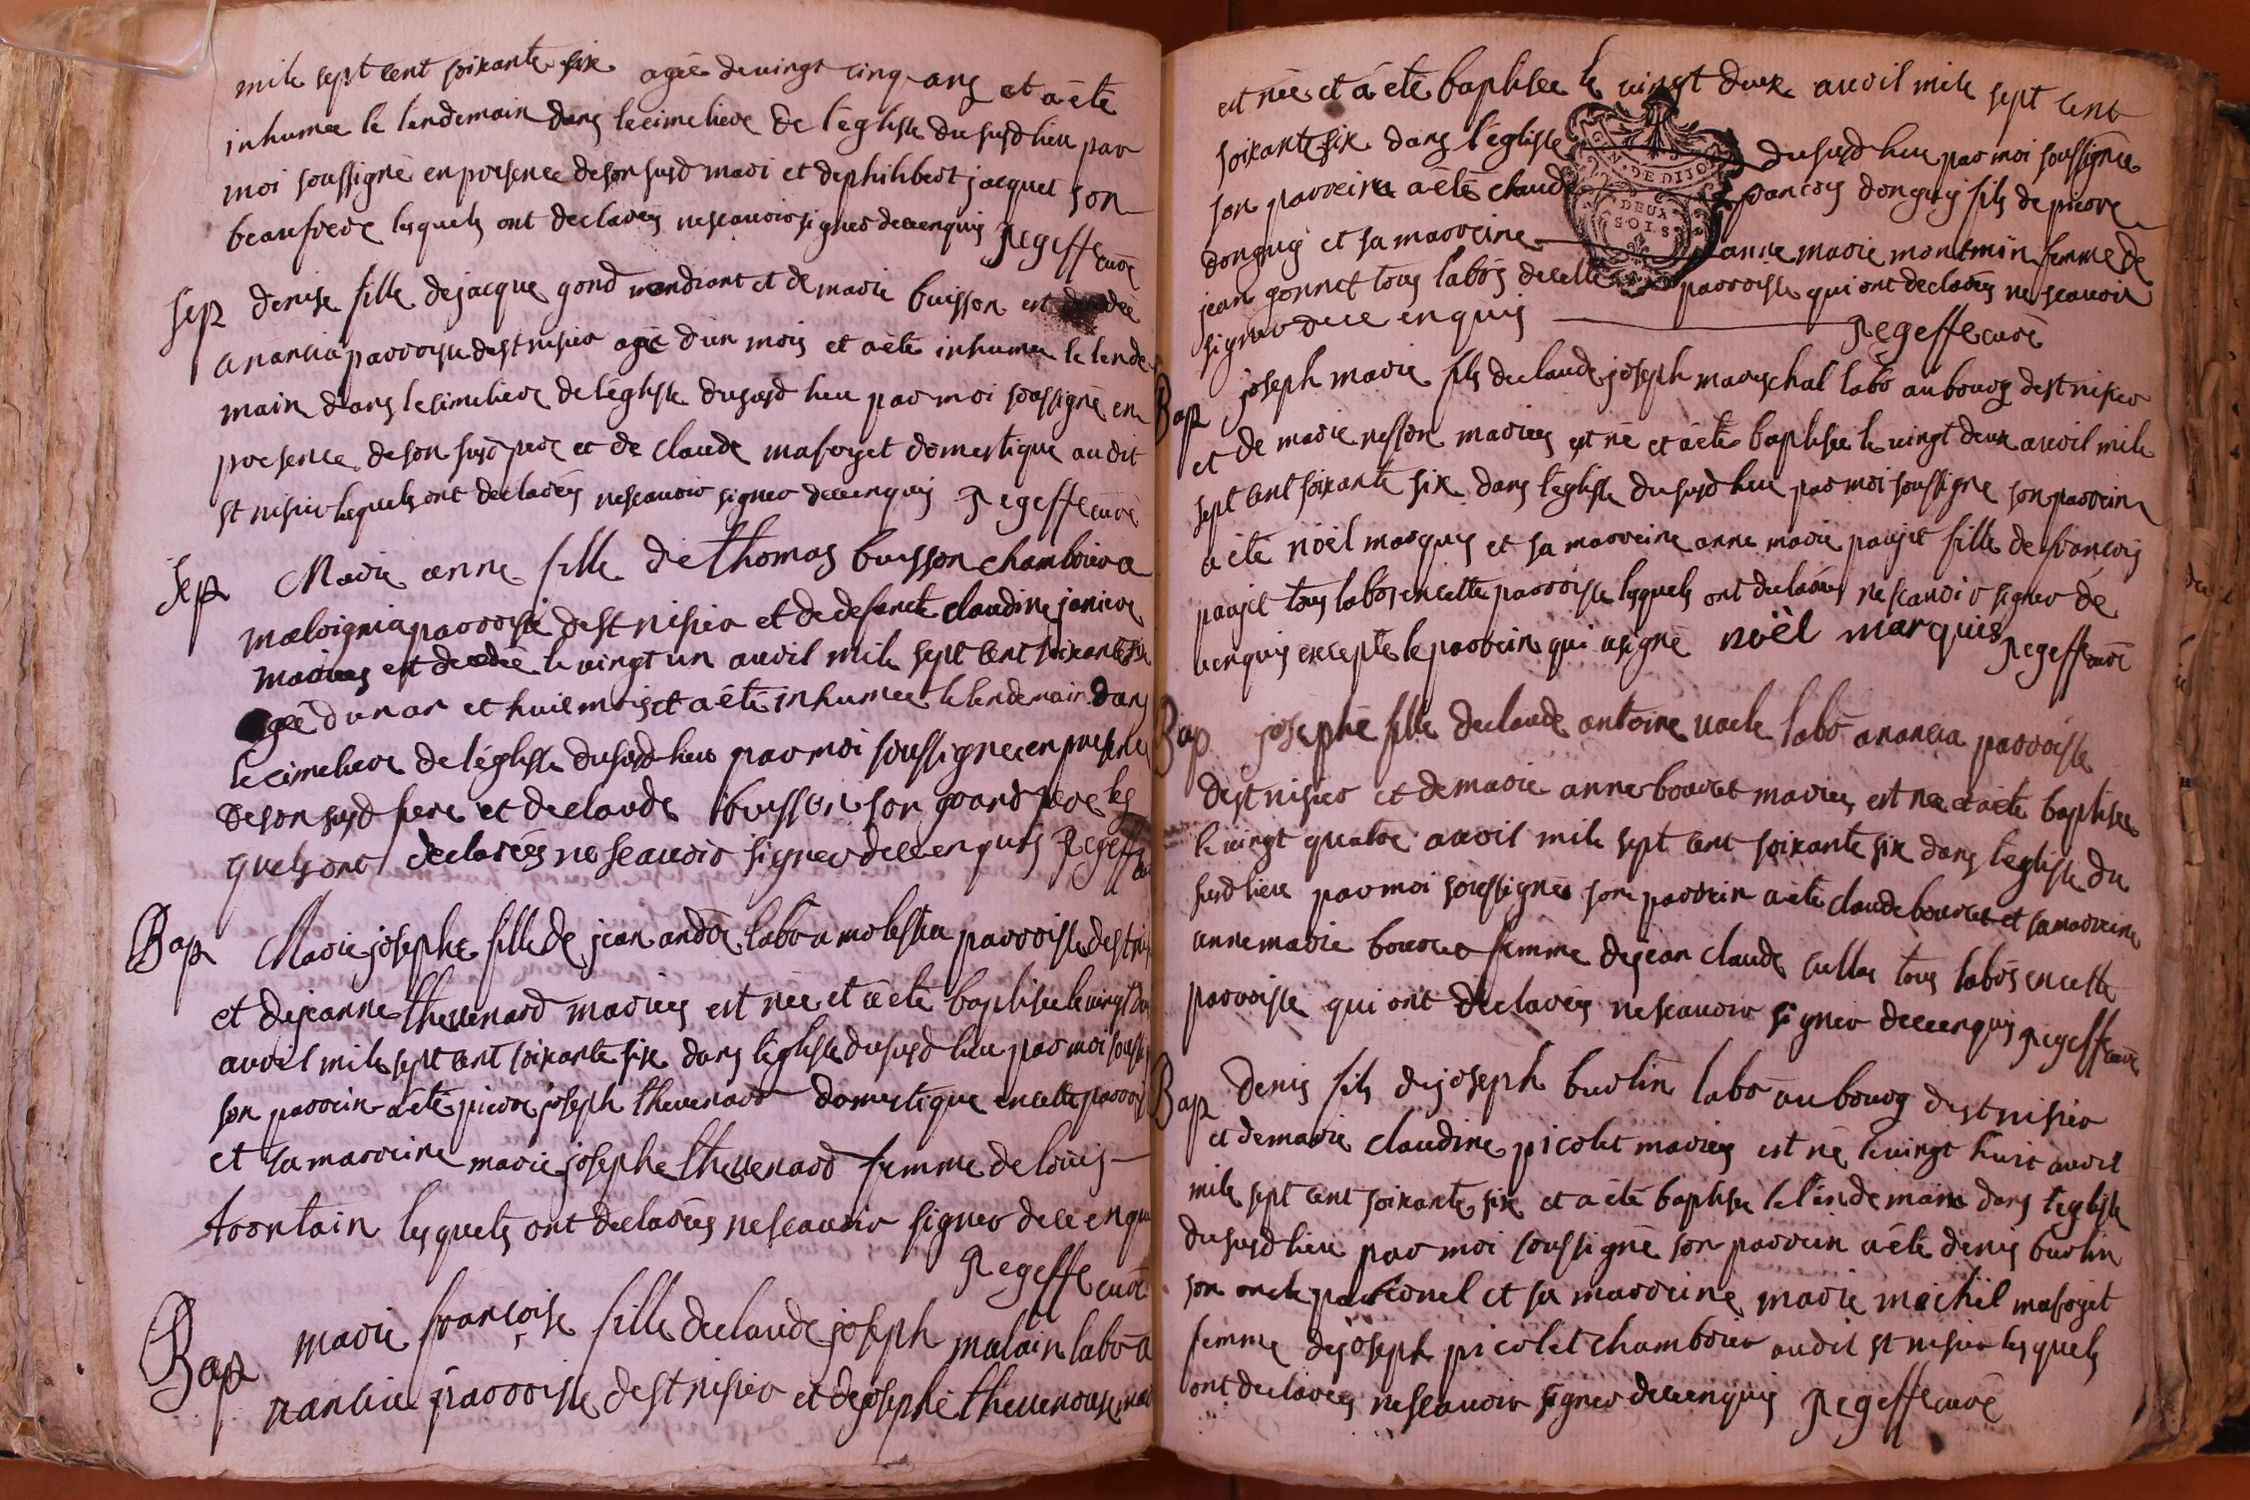 mile sept cent soixante six agée de vingt cinq ans et a été
inhumee le lendemain dans le cimetiere de l'eglisse du susd lieu par
moi soussigné en presence de son susd mari et de philibert jacquet son
beaufrere lesquels ont declarés ne scavoir signer de ce enquis Regeffe curé
Sep denise fille de jacque gond mendiant et de marie buisson est decedée
a nancia parroisse de st nisier agée d'un mois et a été inhumee le lende
main dans le cimetiere de l'eglisse du susd lieu par moi soussigné en
presence de son susd pere et de claude masoyet domestique audit
st nisier lesquels ont declarés ne scavoir signer de ce enquis Regeffe curé
Sep Marie anne fille de thomas buisson chambrier a
parroisse de st nisier et de defuncte claudine janiere
mariés est decedée le vingt un avril mile sept cent soixante six
agée d'un an et huit mois et a été inhumee le lendemain dans
le cimetiere de l'eglisse du susd lieu par moi soussigné en presence
de son susd pere et de claude buisson son grand pere les
quels ont declarées ne scavoir signer de ce enquis Regeffe cu
Bap Marie josephe fille de jean andré labor a molestia parroisse de st nisi
et de jeanne thevenard mariés est née et a été baptisée le vingt du
avril mile sept cent soixante six dans l'eglisse du susd lieu par moi souss
son parrein a été pierre joseph thevenard domestique en cette parrois
et sa marreine marie josephe thevenard femme de louis
tointain lesquels ont declarées ne scavoir signer de ce enqui
Regeffe curé
Bap marie françoise fille de claude joseph malain labor a
nancia parroisse de st nisier et de josephe mar
est née et a été baptisée le vingt deux avril mile sept cent
soixante six dans l'eglisse du susd lieu par moi soussignée
GEN. DE DIJON
DEUX
SOLS
son parreine a été claude françois donguy fils de pierre
donguy et sa marreine anne marie montmin femme de
jean gonnet tous labors de cette parroisse qui ont declarés ne scavoir
signer de ce enquis Regeffe curé
Bap joseph marie fils de claude joseph mareschal labor au bourg de st nisier
et de marie nesson mariés est né et a été baptisée le vingt deux avril mile
sept cent soixante six dans l'eglisse du susd lieu par moi soussigné son parrein
a été noël marquis et sa marreine anne marie paujet fille de françois
paujet tous labors en cette parroisse lesquels ont declarés ne scavoir signer de
ce enquis excepté le parrein qui a signé noël marquis Regeffe curé
Bap josephe fille de claude antoine labor a nancia parroisse
de st nisier et de marie anne bouret mariés est née et a été baptisée
le vingt quatre avril mile sept cent soixante six dans l'eglisse du
susd lieu par moi soussigné son parrein a été claude bouret et sa marreine
anne marie bouret femme de jean claude tous labors en cette
parroisse qui ont declarés ne scavoir signer de ce enquis Regeffe curé
Bap denis fils de joseph burtin labor au bourg de st nisier
et de marie claudine picolet mariés est né le vingt huit avril
mile sept cent soixante six et a été baptisé le lendemain dans l'eglisse
du susd lieu par moi soussigné son parrein a été denis burtin
son oncle paternel et sa marreine marie michel masoyet
femme de joseph picolet chambrier audit st nisier lesquels
ont declarés ne scavoir signer de ce enquis Regeffe curé